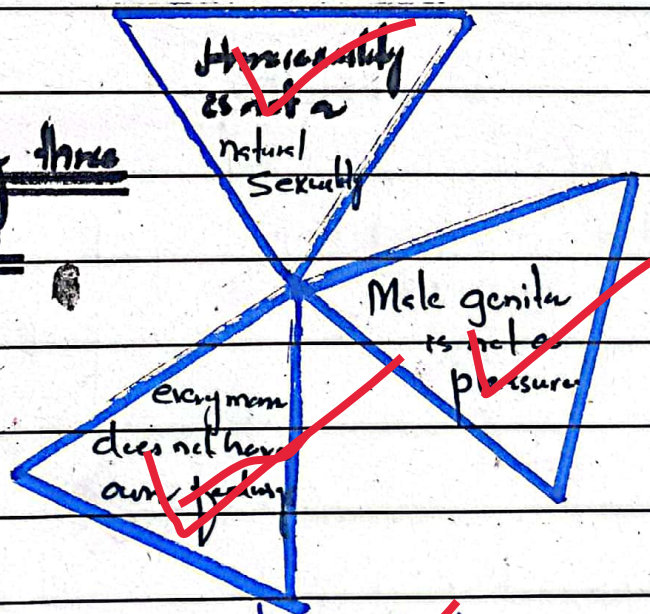 three
Homosexuality
is not a
natural
Sexuality
Male genita
is not a
pleasure
every man
does not have
own